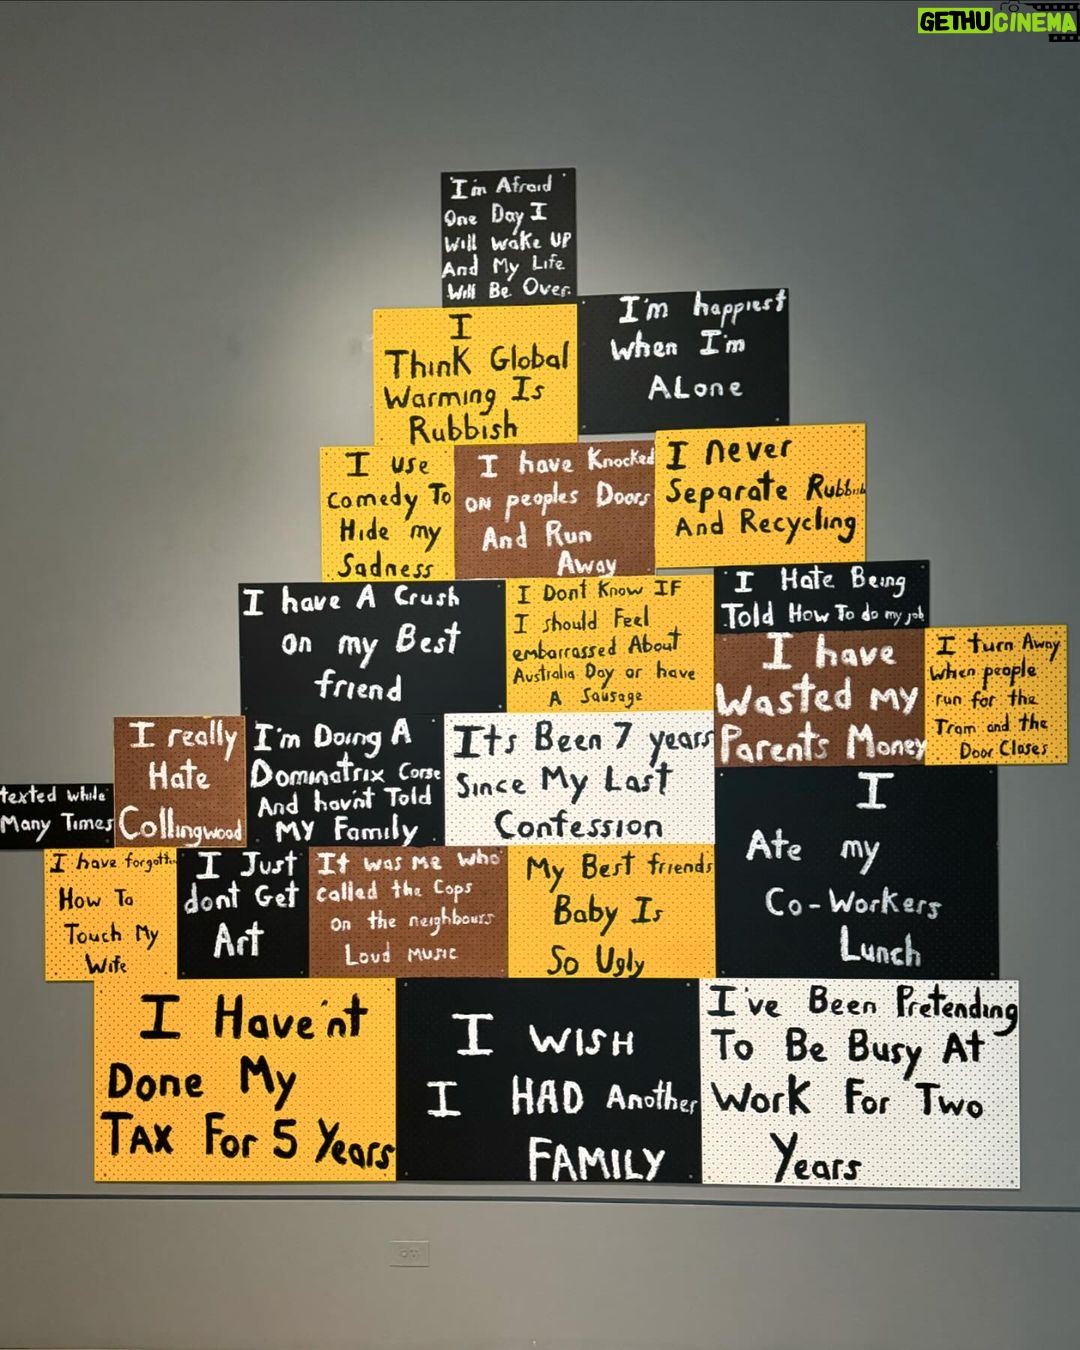 GETHUCINEMA
I'm Afraid
One Day I
Will wake UP
And My Life
Will Be Over
I
Think Global
Warming Is
Rubbish
I'm happiest
when I'm
ALone
I use
Comedy To
Hide my
Sadness
I have Knocked
ON peoples Doors
And Run
Away
I never
Separate Rubbish
And Recycling
I have A Crush
on my Best
friend
I Dont Know IF
I should Feel
embarrassed About
Australia Day or have
A Sausage
I Hate Being
Told How To do my job
I have
Wasted My
Parents Money
I turn Away
When people
run for the
Tram and the
Door Closes
texted while
Many Times
I really
Hate
Collingwood
I'm Doing A
Dominatrix Corse
And hav'nt Told
MY Family
Its Been 7 years
Since My Last
Confession
I
Ate my
Co-Workers
Lunch
I have forgotten
How To
Touch My
Wife
I Just
dont Get
Art
It was Me who
called the Cops
on the neighbours
Loud Music
My Best friends
Baby Is
So Ugly
I Have'nt
Done My
TAX For 5 Years
I WISH
I HAD Another
FAMILY
I've Been Pretending
To Be Busy At
Work For Two
Years